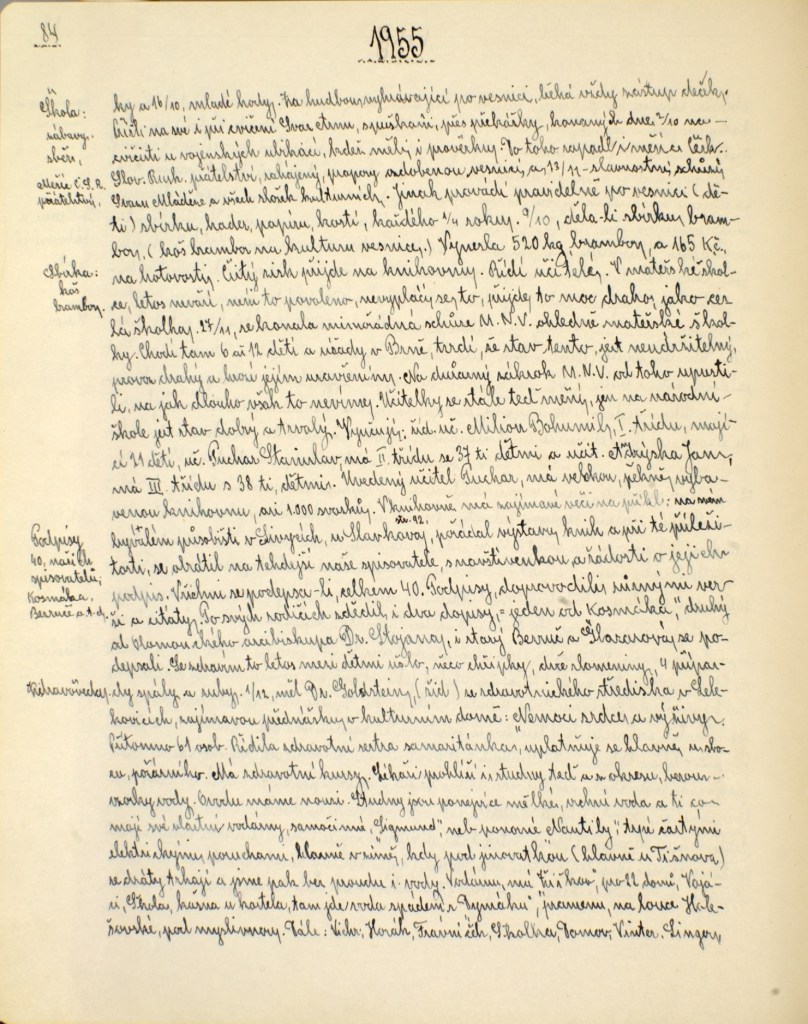 84
1955
Škola:
zábavy.
sběr,
Měsíc Č.S.R.
přátelství,
ky a 16/10, mladé hody. Za hudbou vyhrávající po vesnici, běhá vždy zástup dečák.
na své i při cvičení Svazarmu, spuškami, přes překážky, konaných dne 2/10 na-
cvičiti u vojenských ubikácí, kdež měli i prověrky. Do toho zapadl i měsíc Česk.
Slov. Rusk. přátelství, zahájený, prapory ozdobenou vesnicí, a 13/11 - slavnostní schůzí
Svazu Mládeže a všech složek kulturních. Jinak provádí pravidelně po vesnici (dě-
ti) sbírku, hader, papíru, kostí, každého 1/4 roku. 9/10, děla-li sbírku bram-
bor, (koš brambor na kulturu vesnice.) Vynesla 520 kg brambor, a 165 Kč.
Sbírka:
koš
brambor.
na hotovosti. Čistý zisk přijde na knihovnu. Řídí učitelé. V mateřské škol-
ce, letos nevaří, není to povoleno, nevyplácí se to, přijde to moc draho, jako ce-
lá školka. 27/11, se konala mimořádná schůze M.N.V. ohledně mateřské škol-
ky. Chodí tam 6 až 12 dětí a úřady v Brně, tvrdí, že stav tento, jest neudržitelný,
provoz drahý a hrozí jejím uzavřením. Na důrazný zákrok M.N.V. od toho upusti-
li, na jak dlouho však to nevíme. Učitelky se stále teď mění, jen na národní
škole jest stav dobrý a trvalý. Vyučují: říd. uč. Milion Bohumil, I. třídu, mají-
cí 21 dětí, uč. Puchar Stanislav, má II. třídu se 37 ti dětmi a učit. Jan,
má III. třídu s 38 ti, dětmi. Uvedený učitel Puchar, má velkou, pěkně vyba-
venou knihovnu, asi 1.000 svazků. V knihovně má zajímavé věci na příkl:
bývalém působišti v u Slavkova, pořádal výstavu knih a při té příleži-
str. 92.
Podpisy
40, našich
spisovatelů,
Kosmáka,
Bezruče a.t.d.
tosti, se obrátil na tehdejší naše spisovatele, s navštivenkou a žádostí o jejich
podpis. Všichni se podepsa-li, celkem 40. Podpisy, doprovodili různými ver-
ši a citáty. Po svých rodičích zdědil i dva dopisy, = jeden od Kosmáka," druhý
od Olomouckého arcibiskupa Dr. Stojana, i starý Bezruč a se po-
depsali. Se zdravím to letos mezi dětmi ušlo, něco chřipky, dvě zlomeniny, 4 přípa-
Zdravověda,
dy spály a zuby. 1/12, měl Dr. Goldstein, (žid) ze zdravotnického střediska v Lele-
kovicích, zajímavou přednášku v kulturním domě: "Nemoci srdce, a výživy.
Přítomno 61 osob. Řídila zdravotní sestra samaritánka, uplatňuje se hlavně, u sbo-
ru, požárního. Má zdravotní kursy. Lékaři prohlíží i studny teď a z okresu, berou
vzorky vody. O vodu máme nouzi. Studny jsou ponejvíce mělké, vrchní voda a ti co
mají své vlastní vodárny, samočinné, "Sigmund", neb ponorné Nautily"; trpí častými
elektrickými poruchami, hlavně v zimě, kdy pod jinovatkou (hlavně u Tišnova)
se dráty trhají a jsme pak bez proudu i vody. Vodárnu, má pro 22 domů,
Škola, kašna u kostela, tam jde voda spádem z "Dymáku", pramenu, na louce Hole-
šovské, pod myslivnou. Dále: Vichr, Horák, Travníček, Skalka, Domov, Vinter, Singer,